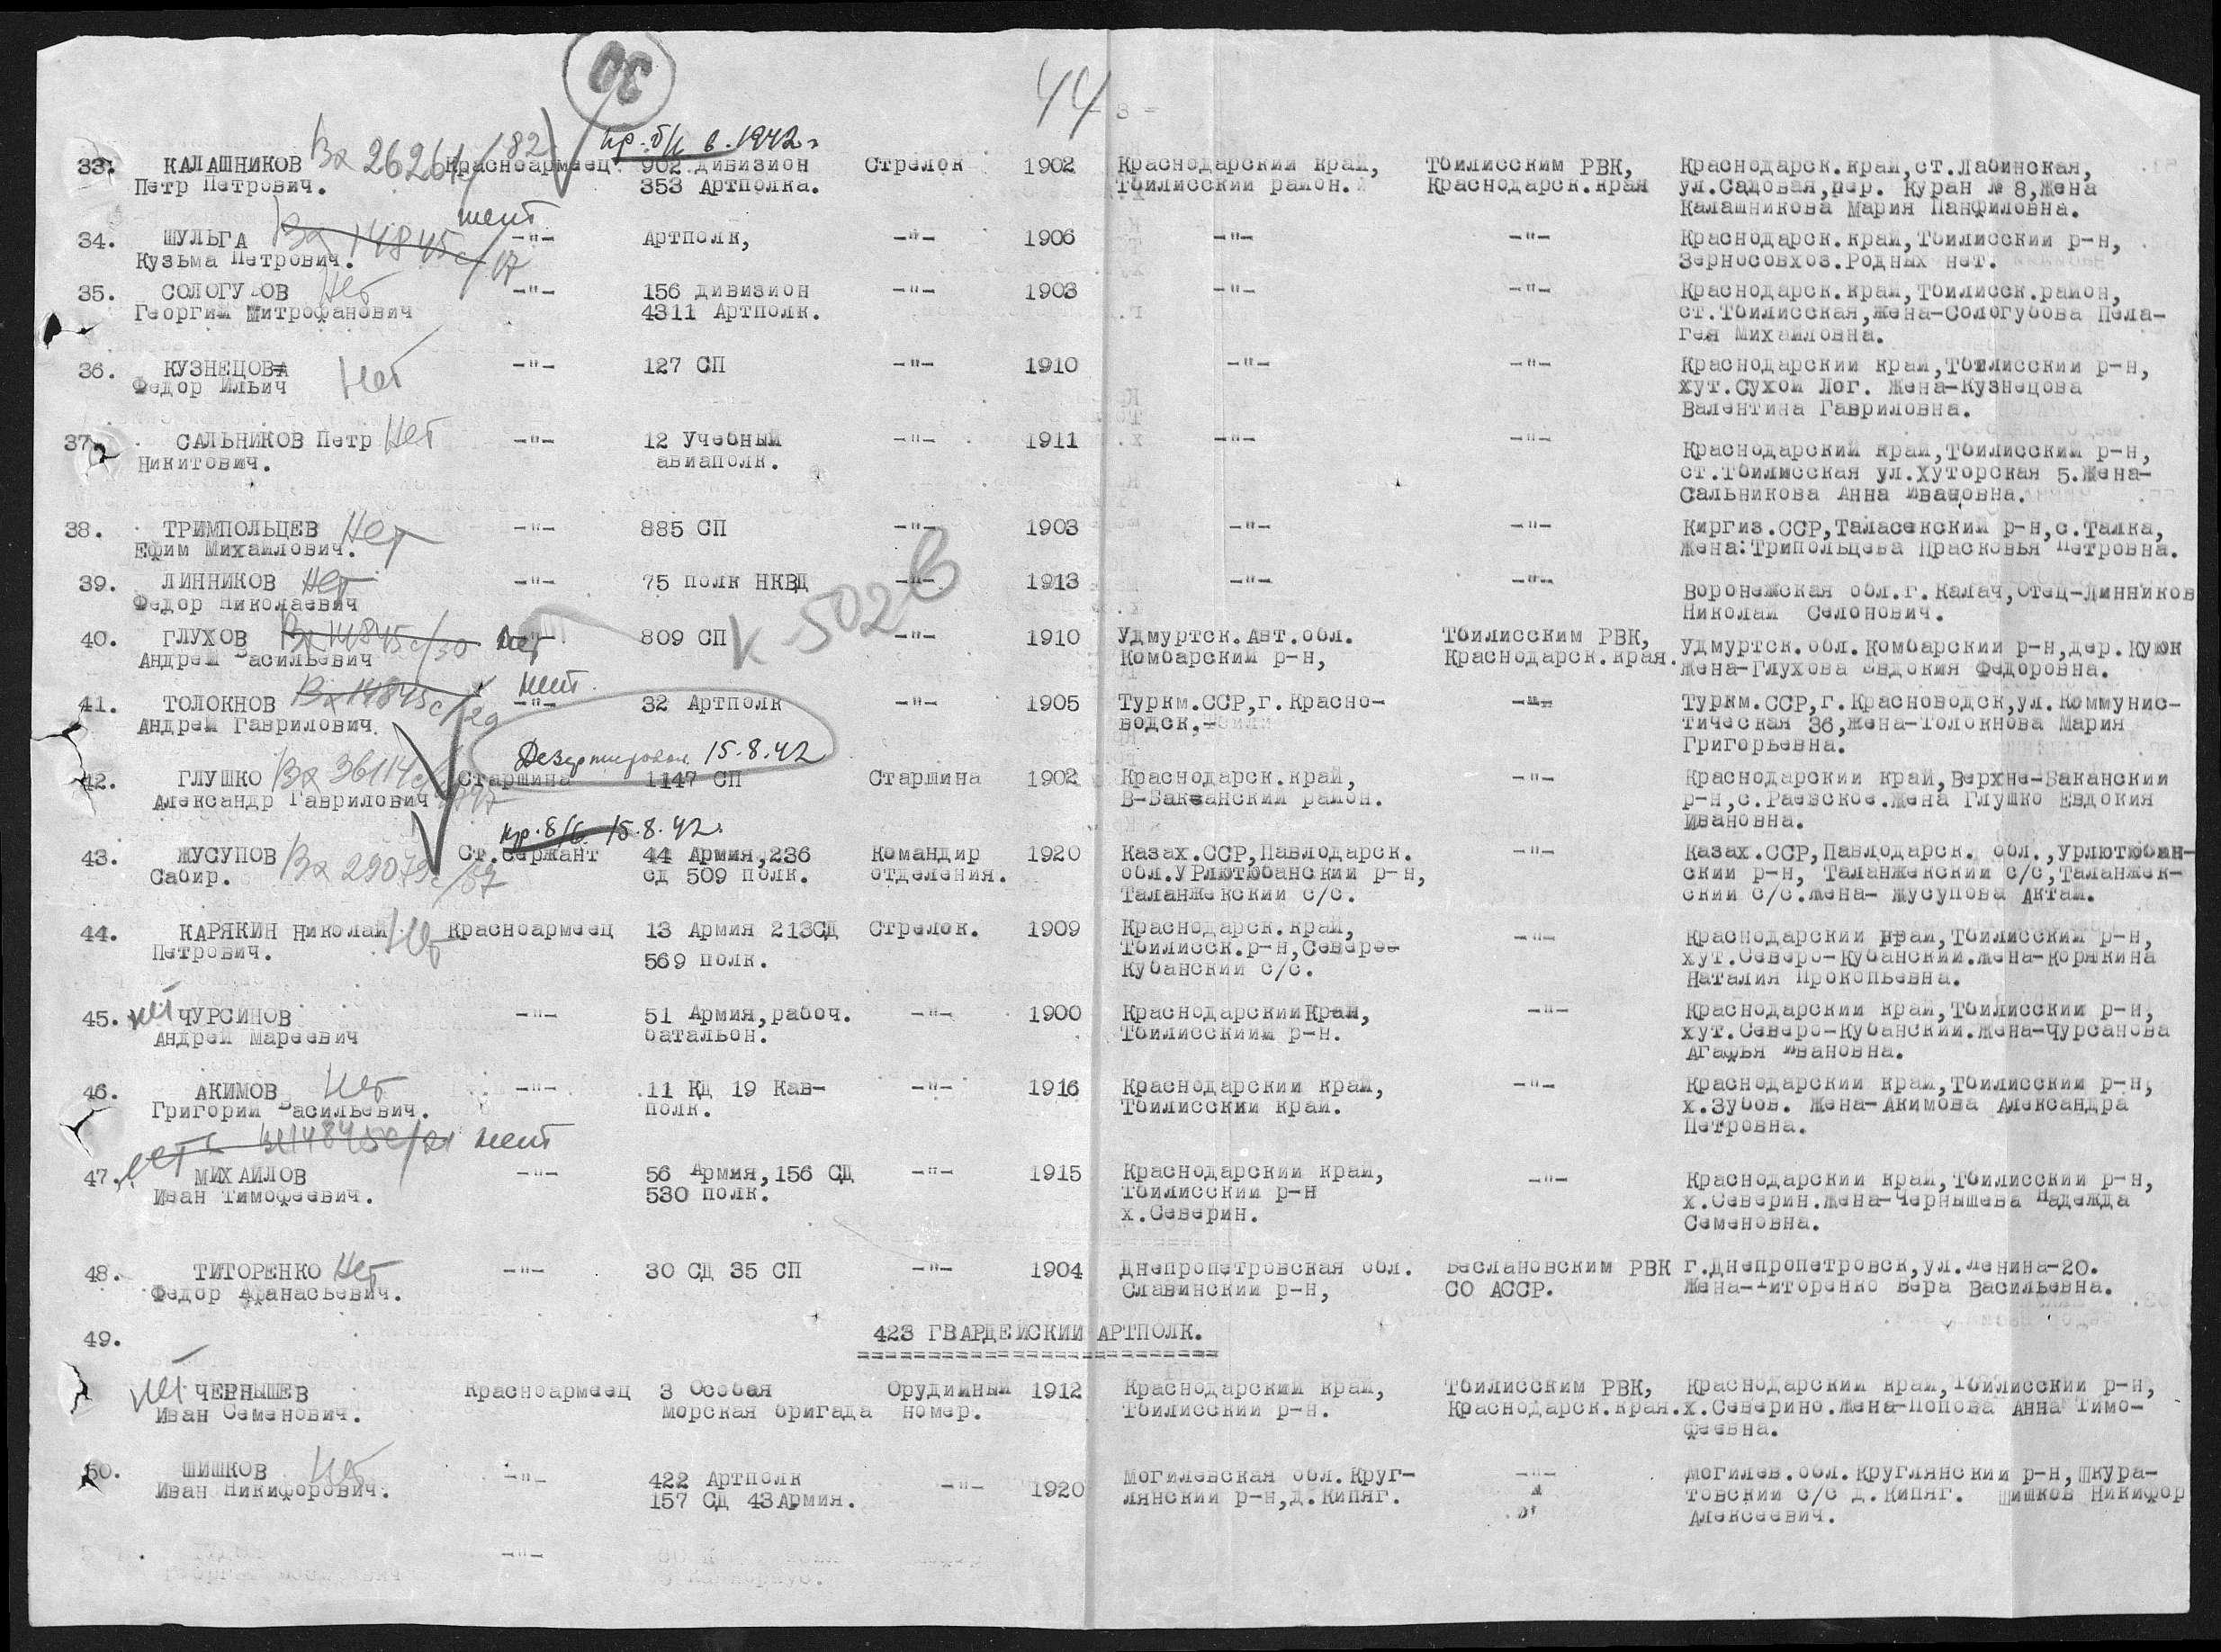 30
44
- 3 -
кр. б/п в. 1942г
33. КАЛАШНИКОВ Вх 26261с/82 Красноармеец 902 дивизион Стрелок 1902 Краснодарский край, Тбилисским РВК, Краснодарск.край,ст.Лабинская,
Петр Петрович. 353 Артполка. Тбилисский район. Краснодарск.края ул.Садовая,пер. Куран № 8,жена
Калашникова Мария Панфиловна.
34. ШУЛЬГА Вх 14845с/17 нет -"- Артполк, -"- 1906 -"- -"- Краснодарск.край,Тбилисский р-н,
Кузьма Петрович. Зерносовхоз.Родных нет.
35. СОЛОГУБОВ Нет -"- 156 дивизион -"- 1903 -"- -"- Краснодарск.край,Тбилисск.район,
Георгий Митрофанович 4311 Артполк. ст.Тбилисская,жена-Сологубова Пела-
гея Михайловна.
36. КУЗНЕЦОВ Нет -"- 127 СП -"- 1910 -"- -"- Краснодарский край,Тбилисский р-н,
Федор Ильич хут.Сухой Лог. Жена-Кузнецова
Валентина Гавриловна.
37. САЛЬНИКОВ Петр Нет -"- 12 Учебный -"- 1911 -"- -"- Краснодарский край,Тбилисский р-н,
Никитович. авиаполк. ст.Тбилисская ул.Хуторская 5.Жена-
Сальникова Анна Ивановна.
38. ТРИМПОЛЬЦЕВ Нет -"- 885 СП -"- 1903 -"- -"- Киргиз.ССР,Таласекский р-н,с.Талка,
Ефим Михайлович. Жена:Трипольцева Прасковья Петровна.
39. ЛИННИКОВ Нет -"- 75 полк НКВД -"- 1913 -"- -"- Воронежская обл.г.Калач,отец-Линников
Федор Николаевич Николай Селонович.
К 502в
40. ГЛУХОВ Вх 14845с/30 Нет -"- 809 СП -"- 1910 Удмуртск.Авт.обл. Тбилисским РВК, Удмуртск.обл.Комбарский р-н,дер.Куюк
Андрей Васильевич Комбарский р-н, Краснодарск.края. Жена-Глухова Евдокия Федоровна.
41. ТОЛОКНОВ Вх 14845с/29 нет. -"- 32 Артполк -"- 1905 Туркм.ССР,г.Красно- -"- Туркм.ССР,г.Красноводск,ул.Коммунис-
Андрей Гаврилович. водск, тическая 36,жена-Толокнова Мария
Григорьевна.
Дезертировал 15.8.42
42. ГЛУШКО Вх 36114с/ Старшина 1147 СП Старшина 1902 Краснодарск.край, -"- Краснодарский край,Верхне-Баканский
Александр Гаврилович В-Баканский район. р-н,с.Раевское.Жена Глушко Евдокия
Ивановна.
кр. б/п 15.8.42г.
43. ЖУСУПОВ Вх 29079с/57 Ст.сержант 44 Армия,236 Командир 1920 Казах.ССР,Павлодарск. -"- Казах.ССР,Павлодарск. обл.,Урлютюбан-
Сабир. сд 509 полк. отделения. обл.Урлютюбанский р-н, ский р-н, Таланжекский с/с,Таланжек-
Таланжекский с/с. ский с/с.жена- Жусупова Акташ.
44. КАРЯКИН Николай Нет Красноармеец 13 Армия 213СД Стрелок. 1909 Краснодарск.край, -"- Краснодарский край,Тбилисский р-н,
Петрович. 569 полк. Тбилисск.р-н,Северо- хут.Северо-Кубанский.жена-Корякина
Кубанский с/с. Наталия Прокопьевна.
45. нет ЧУРСИНОВ -"- 51 Армия,рабоч. -"- 1900 Краснодарский Край, -"- Краснодарский край,Тбилисский р-н,
Андрей Мареевич батальон. Тбилисский р-н. хут.Северо-Кубанский.Жена-Чурсанова
Агафья Ивановна.
46. АКИМОВ Нет -"- 11 КД 19 Кав- -"- 1916 Краснодарский край, -"- Краснодарский край,Тбилисский р-н,
Григорий Васильевич. полк. Тбилисский край. х.Зубов. Жена-Акимова Александра
Петровна.
нет Вх14845с/21 нет
47. МИХАЙЛОВ -"- 56 Армия,156 СД -"- 1915 Краснодарский край, -"- Краснодарский край,Тбилисский р-н,
Иван Тимофеевич. 530 полк. Тбилисский р-н х.Северин.жена-Чернышева Надежда
х.Северин. Семеновна.
48. ТИТОРЕНКО Нет -"- 30 СД 35 СП -"- 1904 Днепропетровская обл. Беслановским РВК г.Днепропетровск,ул.Ленина-20.
Федор Афанасьевич. Славинский р-н, СО АССР. Жена-Титоренко Вера Васильевна.
49. 423 ГВАРДЕЙСКИЙ АРТПОЛК.
нет ЧЕРНЫШЕВ Красноармеец 3 Особая Орудийный 1912 Краснодарский край, Тбилисским РВК, Краснодарский край,Тбилисский р-н,
Иван Семенович. Морская бригада номер. Тбилисский р-н. Краснодарск.края. х.Северино.Жена-Попова Анна Тимо-
феевна.
50. ШИШКОВ Нет -"- 422 Артполк -"- 1920 Могилевская обл.Круг- -"- Могилев.обл.Круглянский р-н,Шкура-
Иван Никифорович. 157 СД 43 Армия. лянский р-н,д.Кипяг. товский с/с д.Кипяг. Шишков Никифор
Алексеевич.
-"-